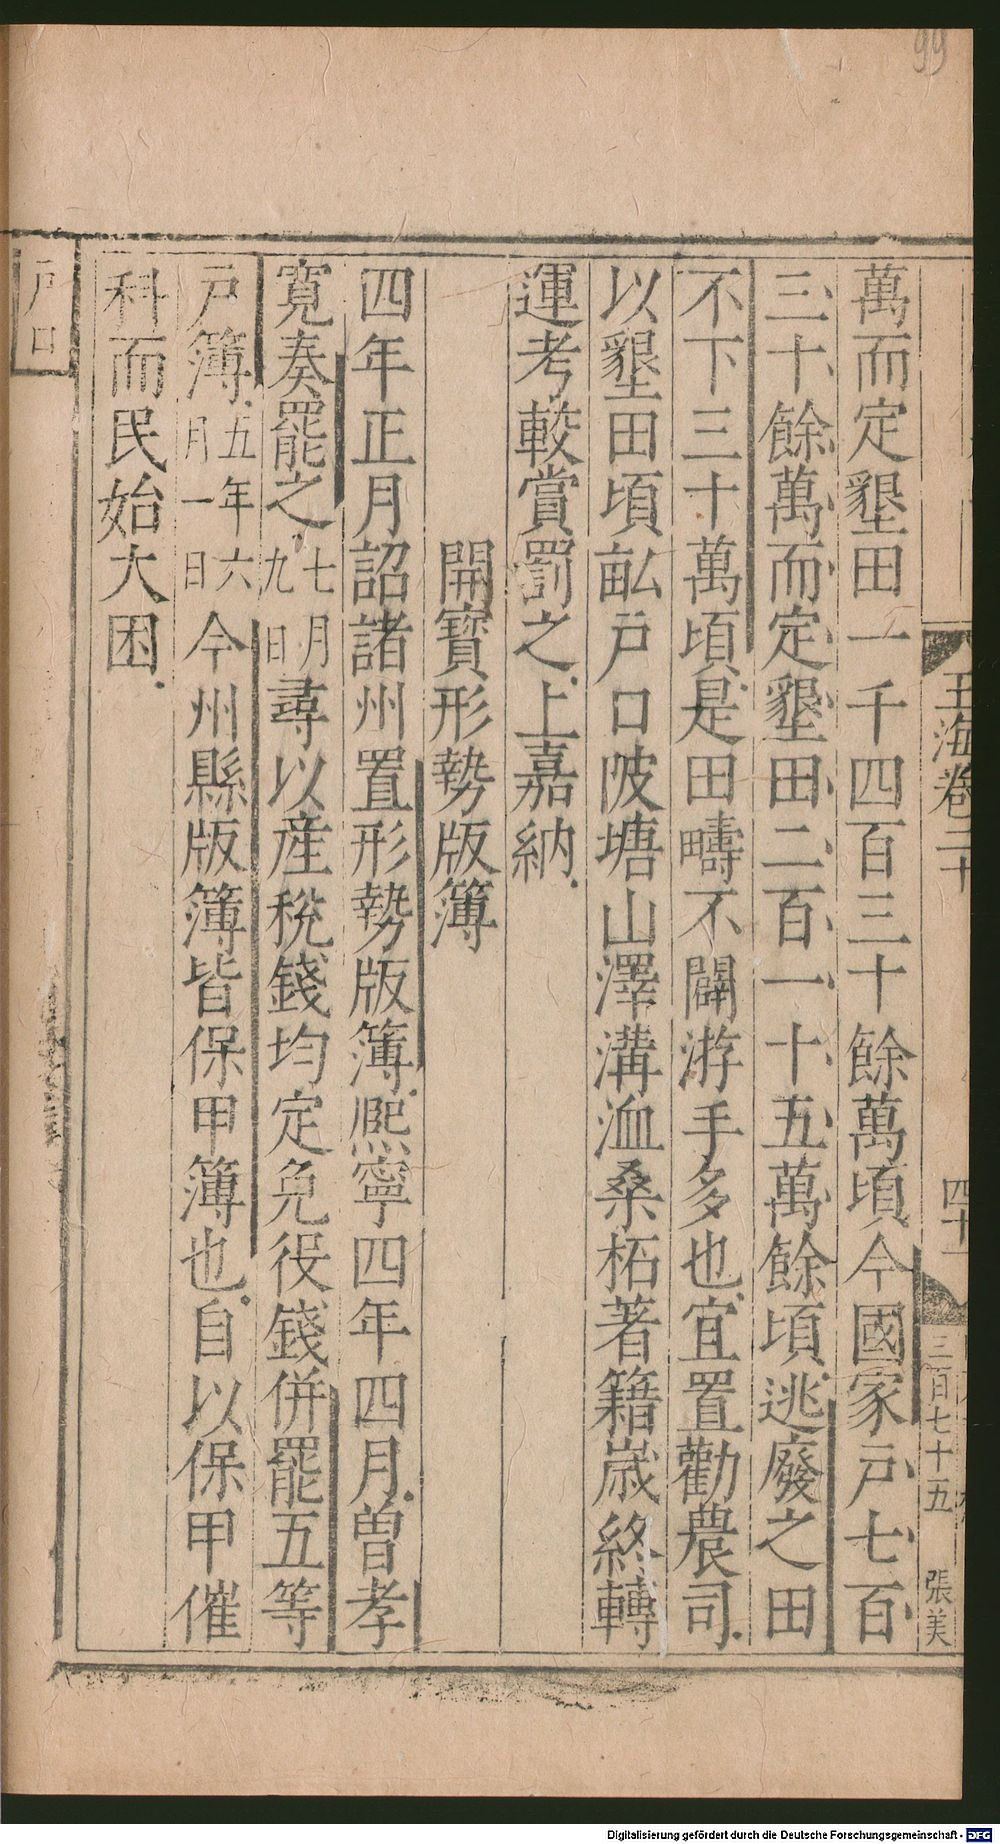 萬而定墾田一千四百三十餘萬頃今國家戶七百
三十餘萬而定墾田二百一十五萬餘頃逃廢之田
不下三十萬頃是田疇不闢游手多也宜置勸農司
以墾田頃畝戶口陂塘山澤溝洫桑柘著籍嵗終轉
運考較賞罰之上嘉納
開寶形勢版簿
四年正月詔諸州置形勢版簿熈寧四年四月曽孝
寛奏罷之七月九日尋以産稅錢均定免役錢併罷五等
戶簿五年六月一日今州縣版簿皆保甲簿也自以保甲催
科而民始大困
戶口
玉海卷二十
四十一
三百七十五
張美
99
Digitalisierung gefördert durch die Deutsche Forschungsgemeinschaft - DFG